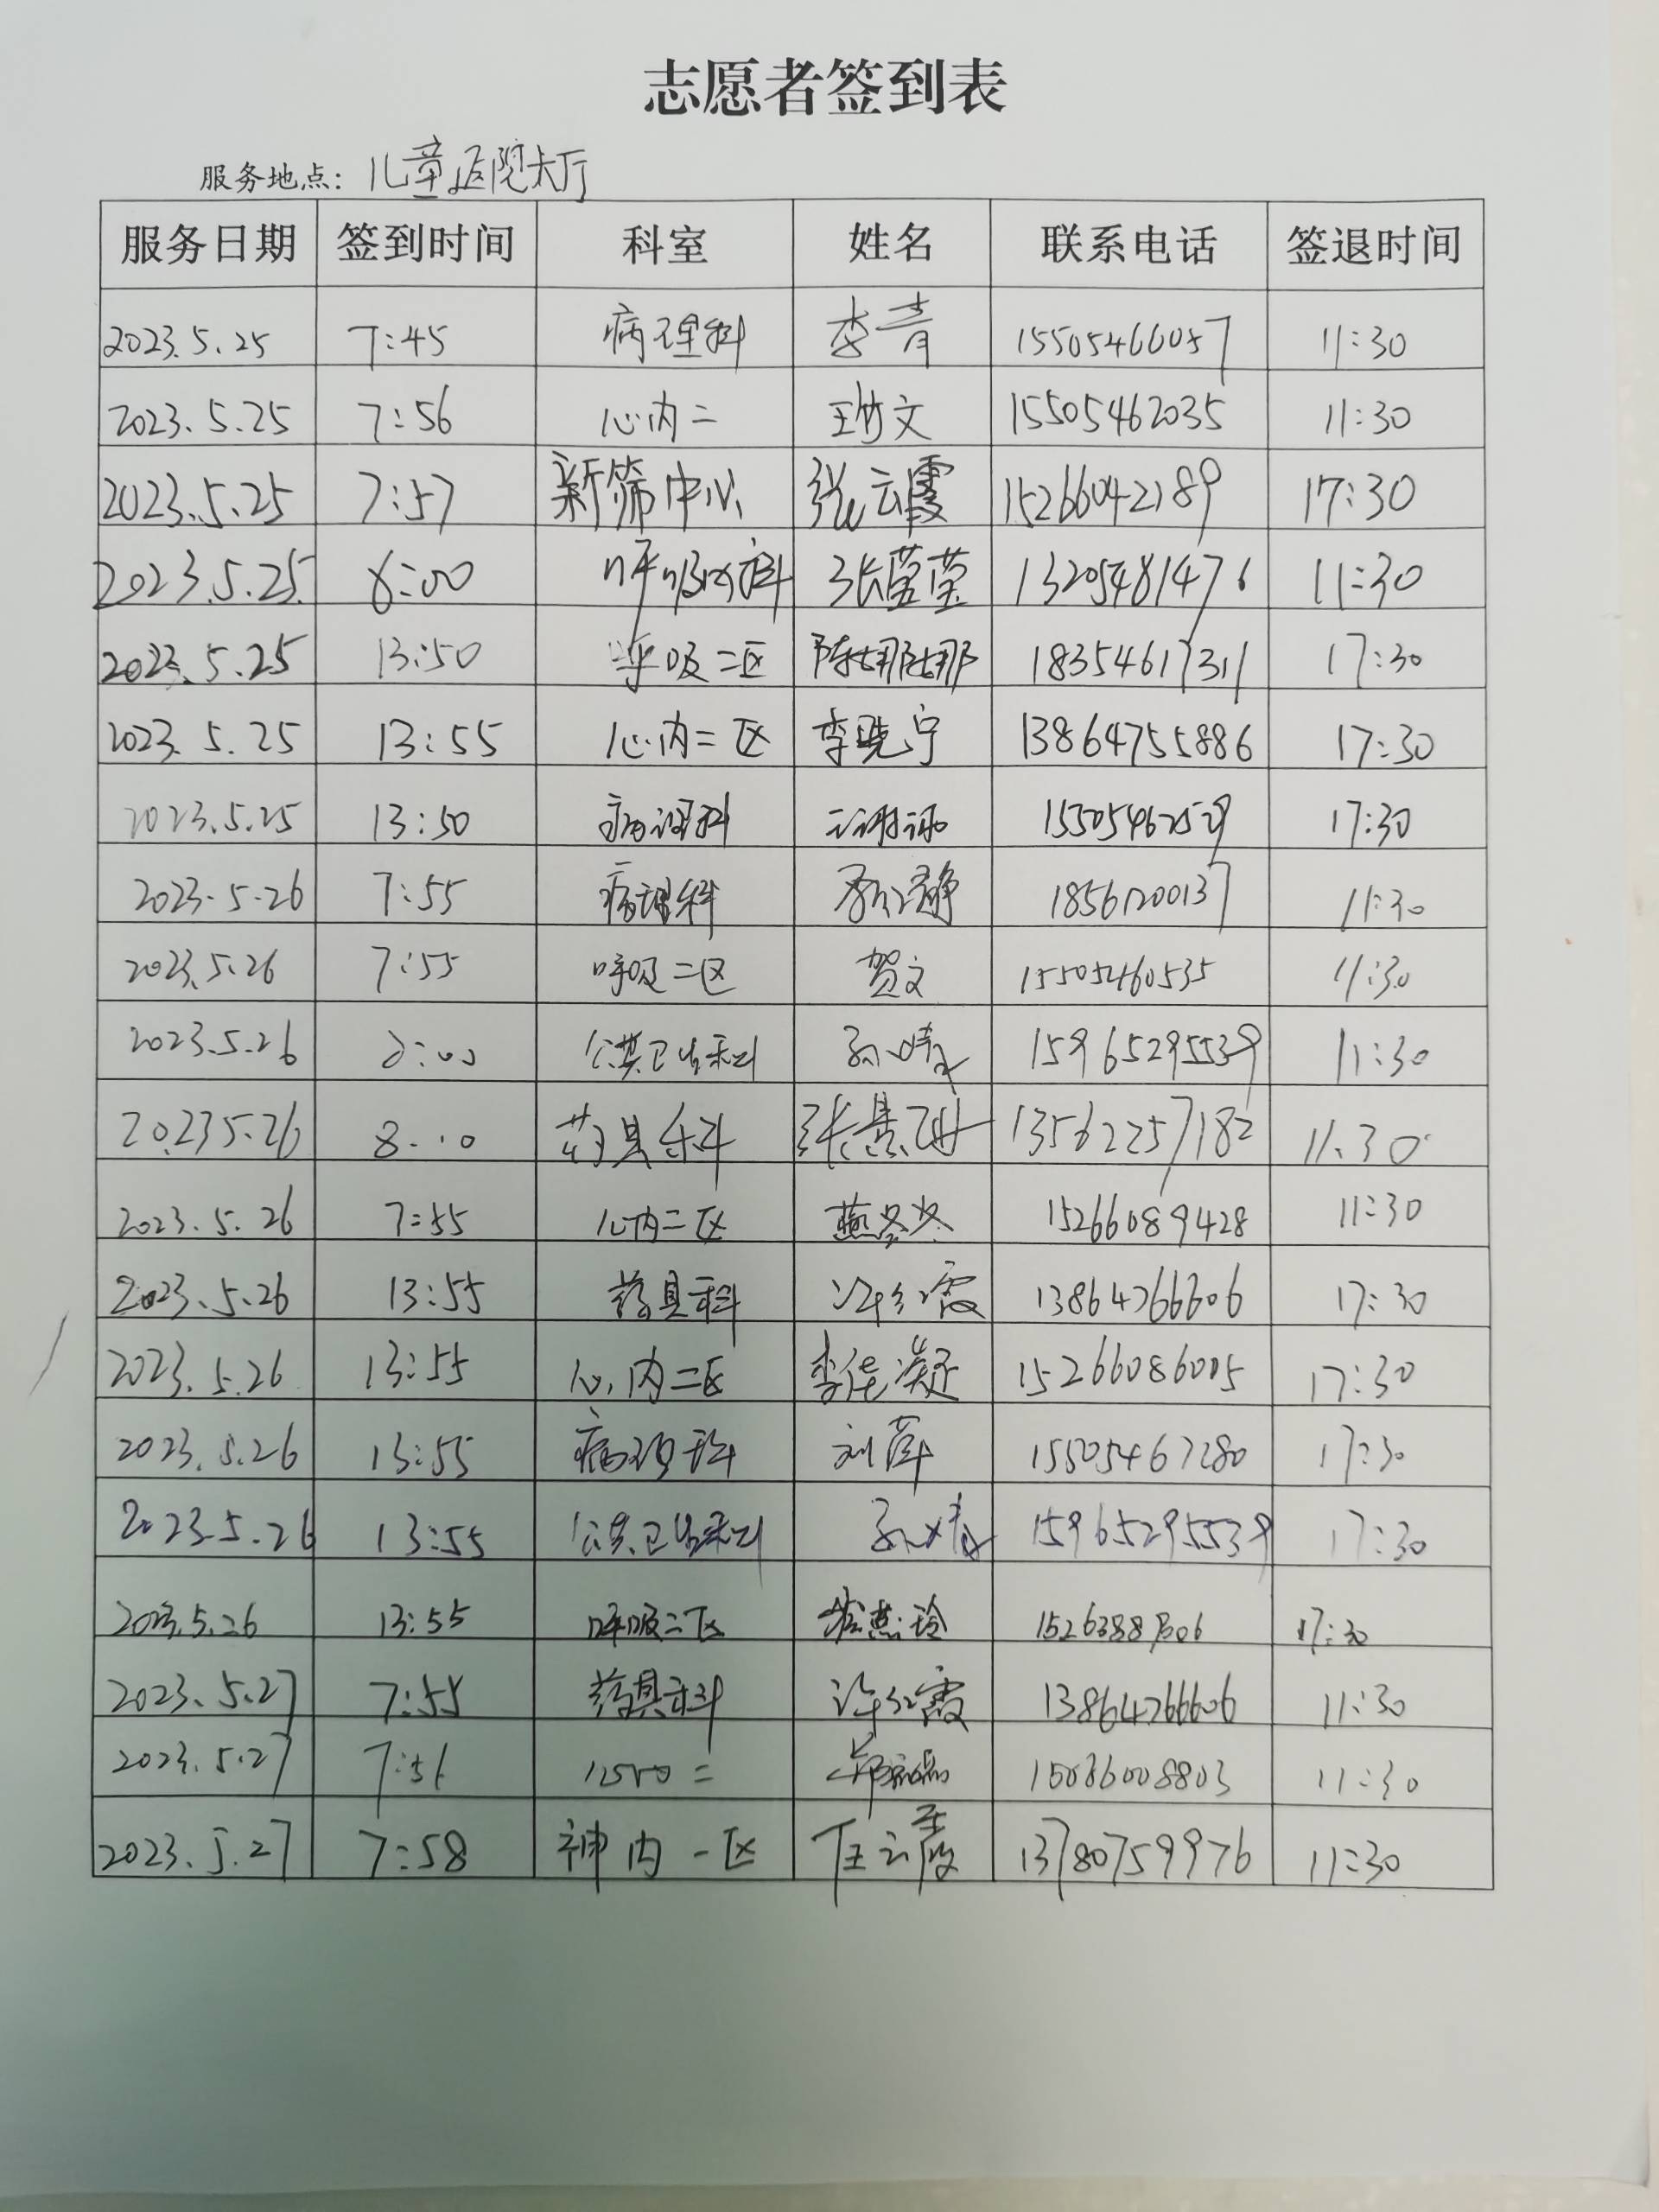 志愿者签到表
服务地点：儿童医院大厅
服务日期 签到时间 科室 姓名 联系电话 签退时间
2023.5.25 7:45 病理科 李青 15505466057 11:30
2023.5.25 7:56 心内二 王竹文 15505462035 11:30
2023.5.25 7:57 新筛中心 张云霞 15266042189 17:30
2023.5.25 8:00 呼吸内科 张莹莹 13205481476 11:30
2023.5.25 13:50 呼吸二区 陈娜娜 18354617311 17:30
2023.5.25 13:55 心内二区 李晓宁 13864755886 17:30
2023.5.25 13:50 病理科 15505462529 17:30
2023.5.26 7:55 病理科 18561200137 11:30
2023.5.26 7:55 呼吸二区 贺文 15505460535 11:30
2023.5.26 8:00 公共卫生科 孙婧 15965295539 11:30
2023 5.26 8:10 药具科 13562257182 11:30
2023.5.26 7:55 心内二区 燕冬冬 15266089428 11:30
2023.5.26 13:55 药具科 许红霞 13864766606 17:30
2023.5.26 13:55 心内二区 李佳凝 15266086005 17:30
2023.5.26 13:55 病理科 刘萍 15505467280 17:30
2023.5.26 13:55 公共卫生科 孙婧 15965295539 17:30
2023.5.26 13:55 呼吸二区 17:30
2023.5.27 7:55 药具科 许红霞 13864766606 11:30
2023.5.27 7:56 心内二 11:30
2023.5.27 7:58 神内一区 任云霞 13780759976 11:30